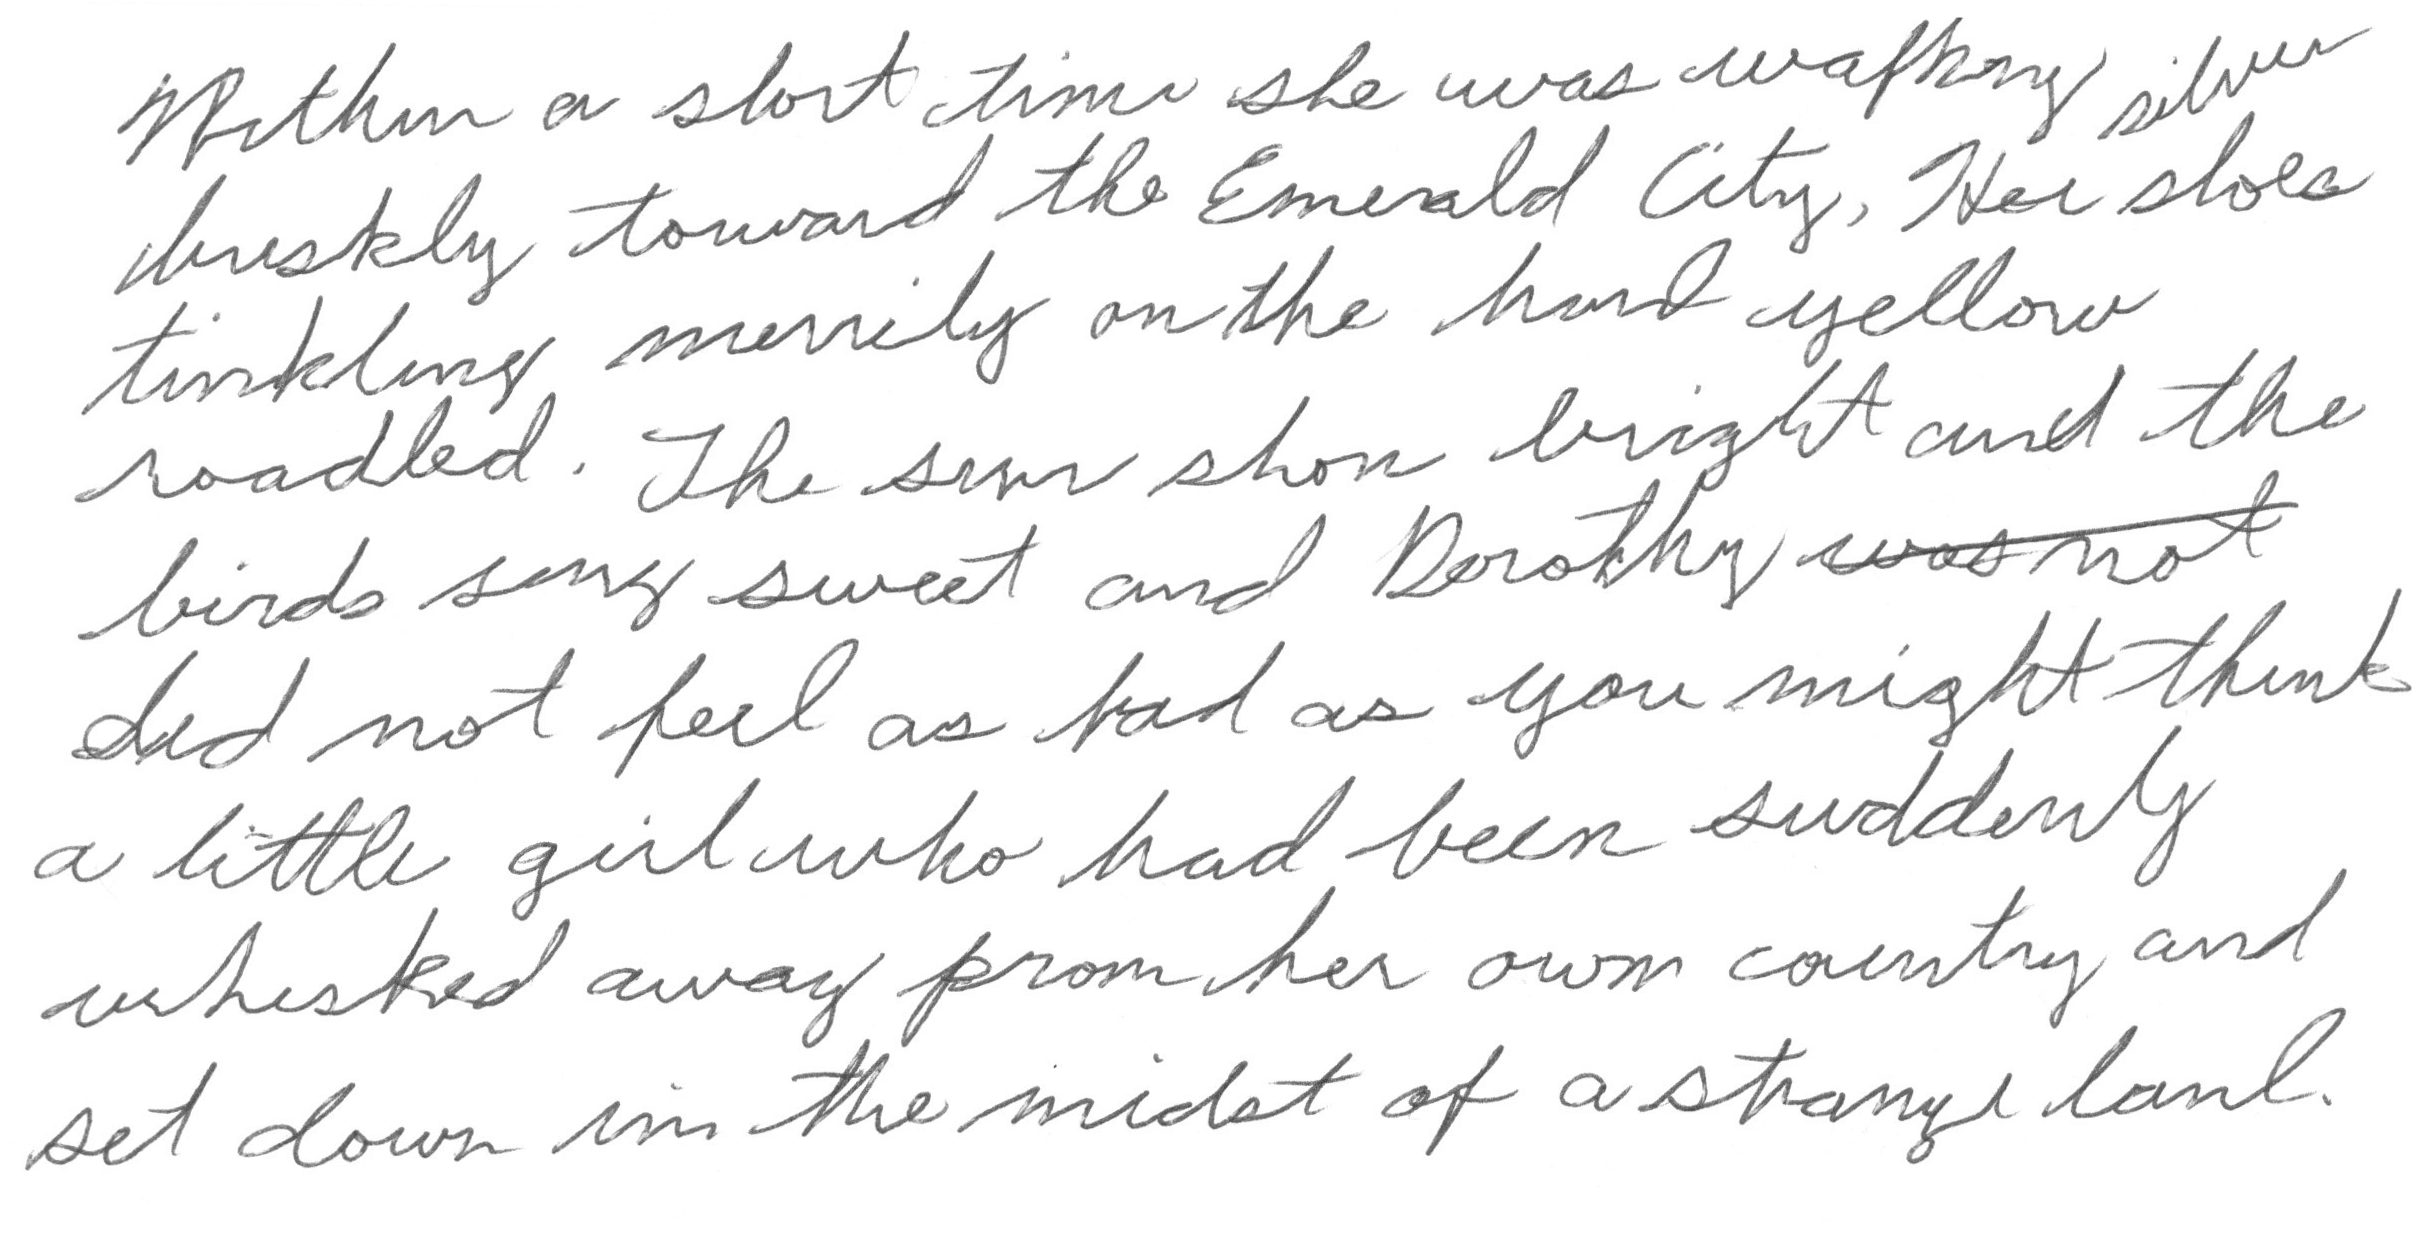 Within a short time she was walking silver
briskly toward the Emerald City, Her shoes
tinkling merrily on the hard yellow
roadbed. The sun shon bright and the
birds sang sweet and Dorothy was not
did not feel as bad as you might think
a little girl who had been suddenly
whisked away from her own country and
set down in the midst of a strange land.